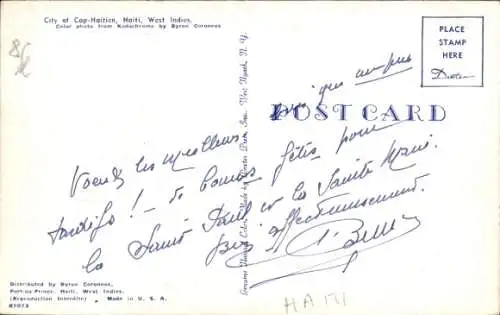 City of Cap-Haitien, Haiti, West Indies.
Color photo from Kodachrome by Byron Coroneos
PLACE
STAMP
HERE
Dexter
POST CARD
ainsi que un peu
Voeux les meilleurs
tardifs! - de bonnes fêtes pour
la Saint Paul et la Sainte Marie.
Bien affectueusement
Distributed by Byron Coroneos,
Port-au-Prince, Haiti, West Indies.
(Reproduction Interdite) Made in U. S. A.
HAITI